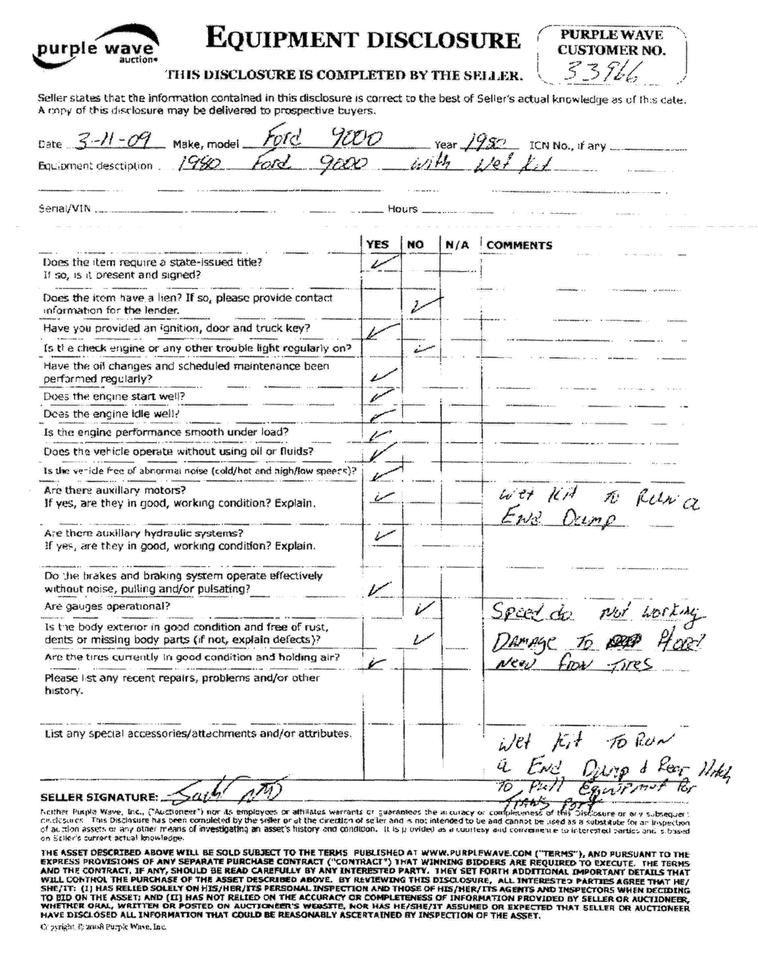 purple wave
auction
EQUIPMENT DISCLOSURE
PURPLE WAVE
CUSTOMER NO.
33966
THIS DISCLOSURE IS COMPLETED BY THE SELLER.
Seller states that the information contained in this disclosure is correct to the best of Seller's actual knowledge as of this date.
A copy of this disclosure may be delivered to prospective buyers.
Date 3-11-09 Make, model Ford 9000 Year 1980 ICN No., if any
Equipment description 1980 Ford 9000 with Wet Kit
Serial/VIN Hours
YES NO N/A COMMENTS
Does the item require a state-issued title? ✓
If so, is it present and signed?
Does the item have a lien? If so, please provide contact
information for the lender. ✓
Have you provided an ignition, door and truck key? ✓
Is the check engine or any other trouble light regularly on? ✓
Have the oil changes and scheduled maintenance been
performed regularly? ✓
Does the engine start well? ✓
Does the engine idle well? ✓
Is the engine performance smooth under load? ✓
Does the vehicle operate without using oil or fluids? ✓
Is the vehicle free of abnormal noise (cold/hot and high/low speeds)? ✓
Are there auxiliary motors? ✓ Wet Kit To Run a
If yes, are they in good, working condition? Explain. End Dump
Are there auxiliary hydraulic systems? ✓
If yes, are they in good, working condition? Explain.
Do the brakes and braking system operate effectively
without noise, pulling and/or pulsating? ✓
Are gauges operational? ✓ Speedo not working
Is the body exterior in good condition and free of rust,
dents or missing body parts (if not, explain defects)? ✓ Damage To Hood
Are the tires currently in good condition and holding air? ✓ New Tires
Please list any recent repairs, problems and/or other
history.
List any special accessories/attachments and/or attributes. Wet Kit To Run
a End Dump & Rear Hitch
To Pull Equipment For
SELLER SIGNATURE:
Neither Purple Wave, Inc., ("Auctioneer") nor its employees or affiliates warrants or guarantees the accuracy or completeness of this Disclosure or any subsequent
disclosures. This Disclosure has been completed by the seller or at the direction of seller and is not intended to be and cannot be used as a substitute for an inspection
of auction assets or any other means of investigating an asset's history and condition. It is provided as a courtesy and convenience to interested parties and is based
on Seller's current actual knowledge.
THE ASSET DESCRIBED ABOVE WILL BE SOLD SUBJECT TO THE TERMS PUBLISHED AT WWW.PURPLEWAVE.COM ("TERMS"), AND PURSUANT TO THE
EXPRESS PROVISIONS OF ANY SEPARATE PURCHASE CONTRACT ("CONTRACT") THAT WINNING BIDDERS ARE REQUIRED TO EXECUTE. THE TERMS
AND THE CONTRACT, IF ANY, SHOULD BE READ CAREFULLY BY ANY INTERESTED PARTY. THEY SET FORTH ADDITIONAL IMPORTANT DETAILS THAT
WILL CONTROL THE PURCHASE OF THE ASSET DESCRIBED ABOVE. BY REVIEWING THIS DISCLOSURE, ALL INTERESTED PARTIES AGREE THAT HE/
SHE/IT: (I) HAS RELIED SOLELY ON HIS/HER/ITS PERSONAL INSPECTION AND THOSE OF HIS/HER/ITS AGENTS AND INSPECTORS WHEN DECIDING
TO BID ON THE ASSET; AND (II) HAS NOT RELIED ON THE ACCURACY OR COMPLETENESS OF INFORMATION PROVIDED BY SELLER OR AUCTIONEER,
WHETHER ORAL, WRITTEN OR POSTED ON AUCTIONEER'S WEBSITE, NOR HAS HE/SHE/IT ASSUMED OR EXPECTED THAT SELLER OR AUCTIONEER
HAVE DISCLOSED ALL INFORMATION THAT COULD BE REASONABLY ASCERTAINED BY INSPECTION OF THE ASSET.
Copyright © 2008 Purple Wave, Inc.